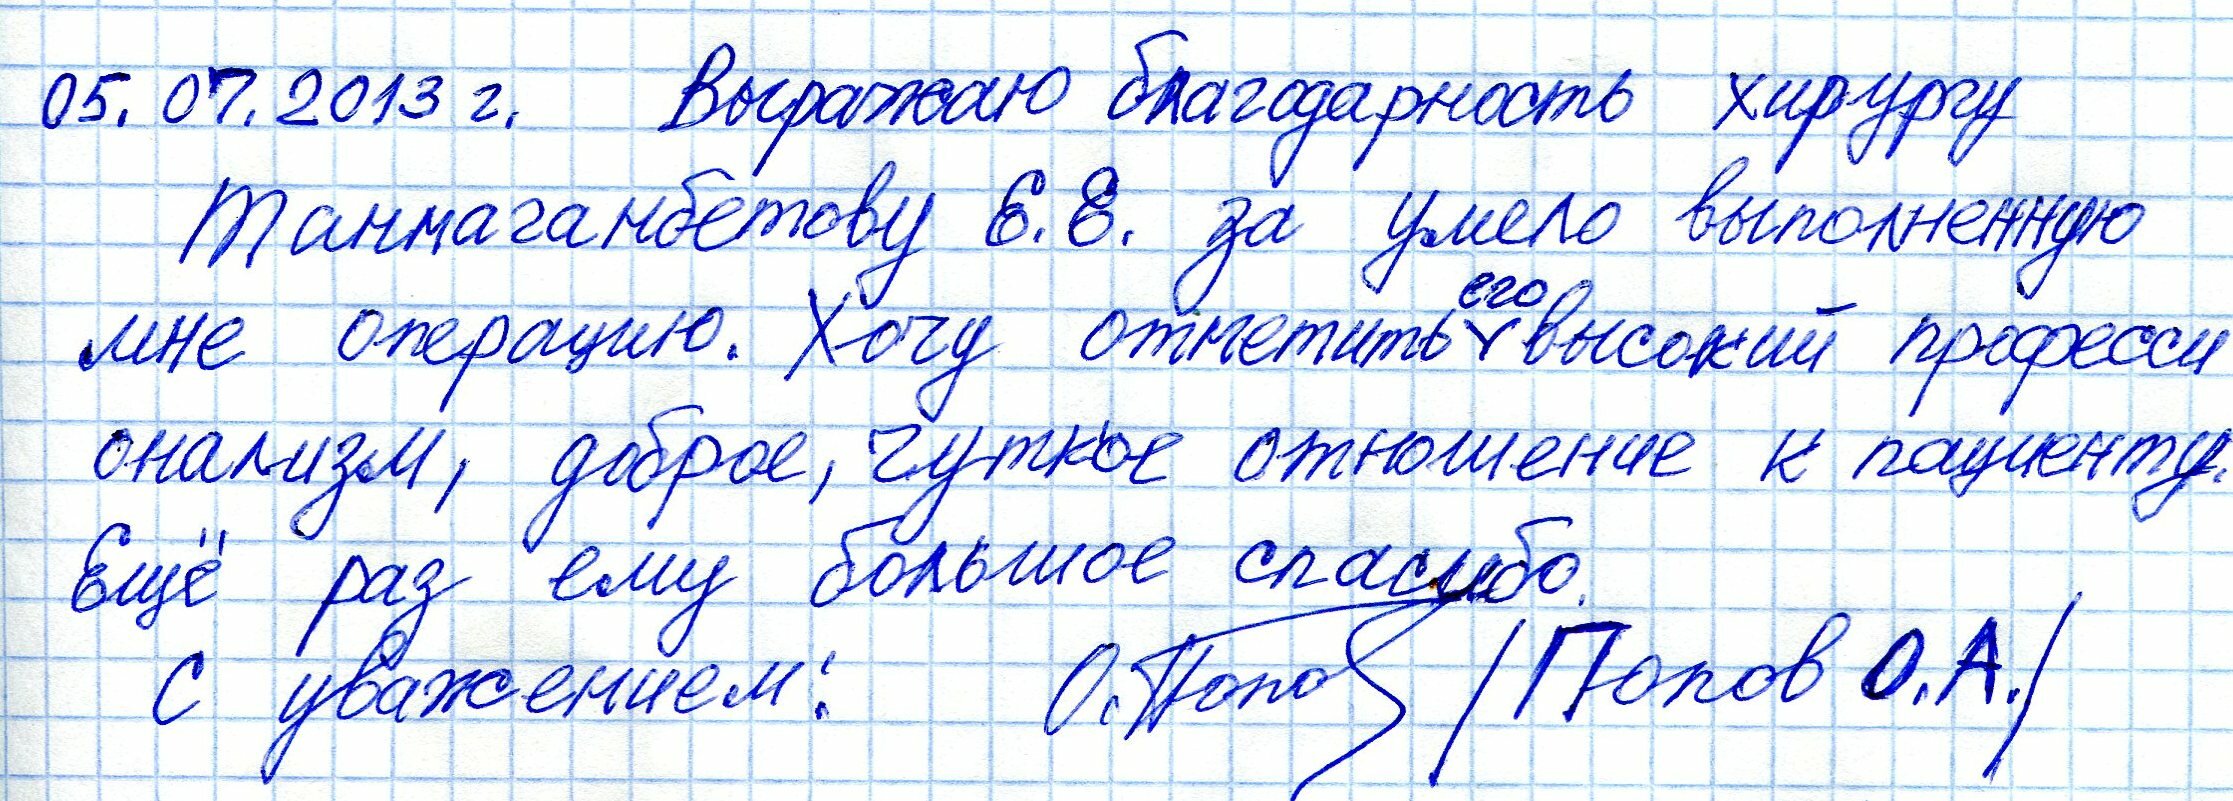 05.07.2013 г. Выражаю благодарность хирургу
Танмаганбетову Е.Е. за умело выполненную
мне операцию. Хочу отметить его высокий професси
онализм, доброе, чуткое отношение к пациенту.
Ещё раз ему большое спасибо.
С уважением: О.Попов /Попов О.А./